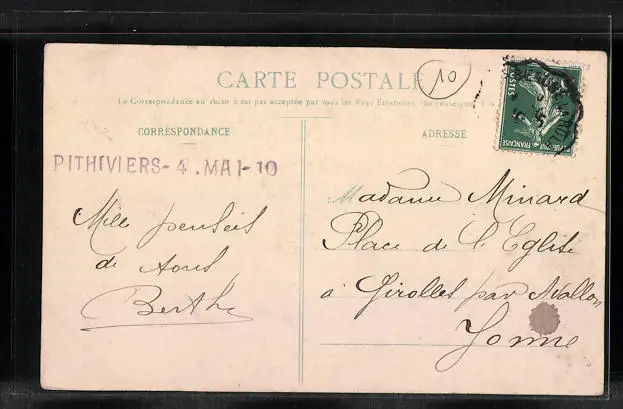 CARTE POSTALE
10
La Correspondance au recto n'est pas acceptée par tous les Pays Étrangers.
CORRESPONDANCE
ADRESSE
PITHIVIERS - 4. MAI - 10
Mille pensées
de tous
Berthe
Madame Minard
Place de l'Eglise
à Girolles par Avallon
Yonne
POSTES
FRANÇAISE